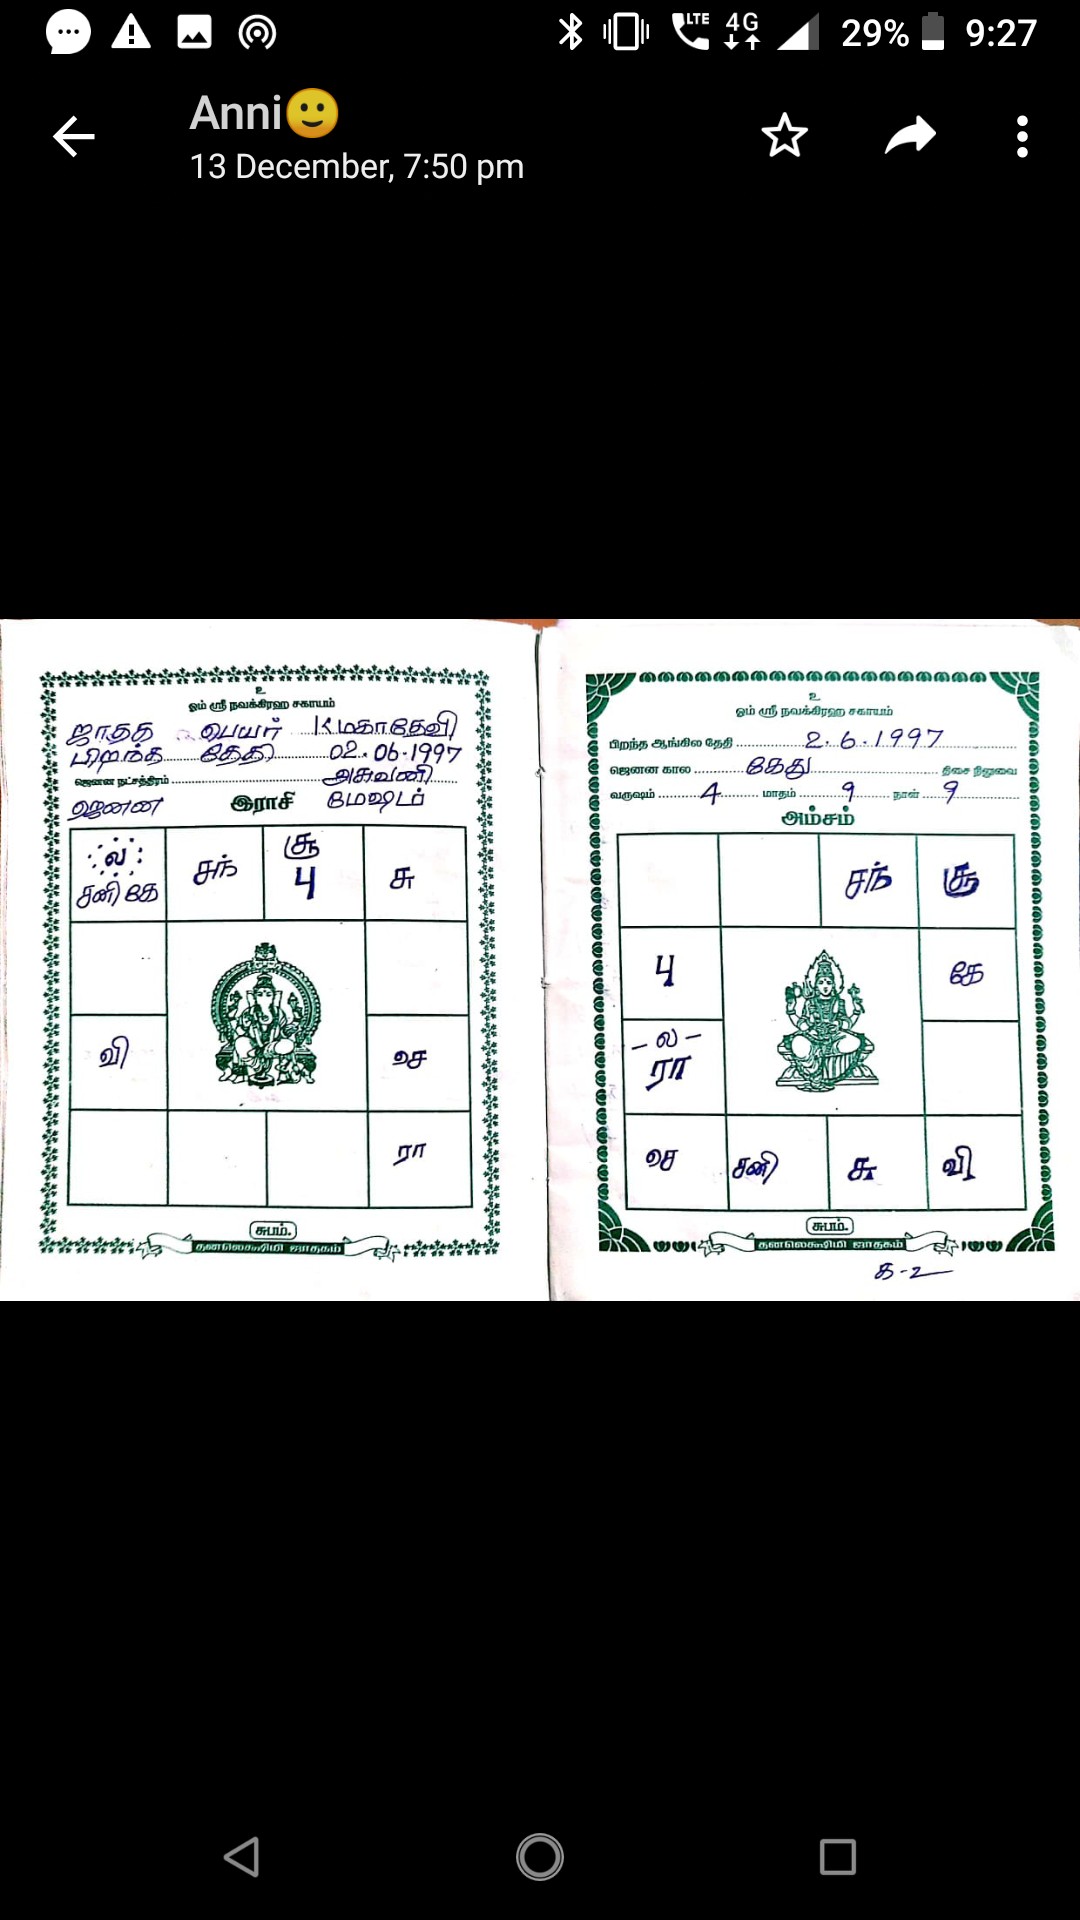 LTE 4G 29% 9:27
Anni🙂
13 December, 7:50 pm
உ
ஓம் ஸ்ரீ நவக்கிரஹ சகாயம்
ஜாதக பெயர் K மகாதேவி
பிறந்த தேதி 02.06.1997
ஜெனன நட்சத்திரம் அசுவணி
ஜெனன இராசி மேஷம்
ல
சனி கே
சந்
சூ
பு
சு
வி
செ
ரா
சுபம்.
தனலெக்ஷிமி ஜாதகம்
உ
ஓம் ஸ்ரீ நவக்கிரஹ சகாயம்
பிறந்த ஆங்கில தேதி 2.6.1997
ஜெனன கால கேது திசை நிலுவை
வருஷம் 4 மாதம் 9 நாள் 9
அம்சம்
சந்
சூ
பு
கே
- ல -
ரா
செ
சனி
சு
வி
சுபம்.
தனலெக்ஷிமி ஜாதகம்
க-2